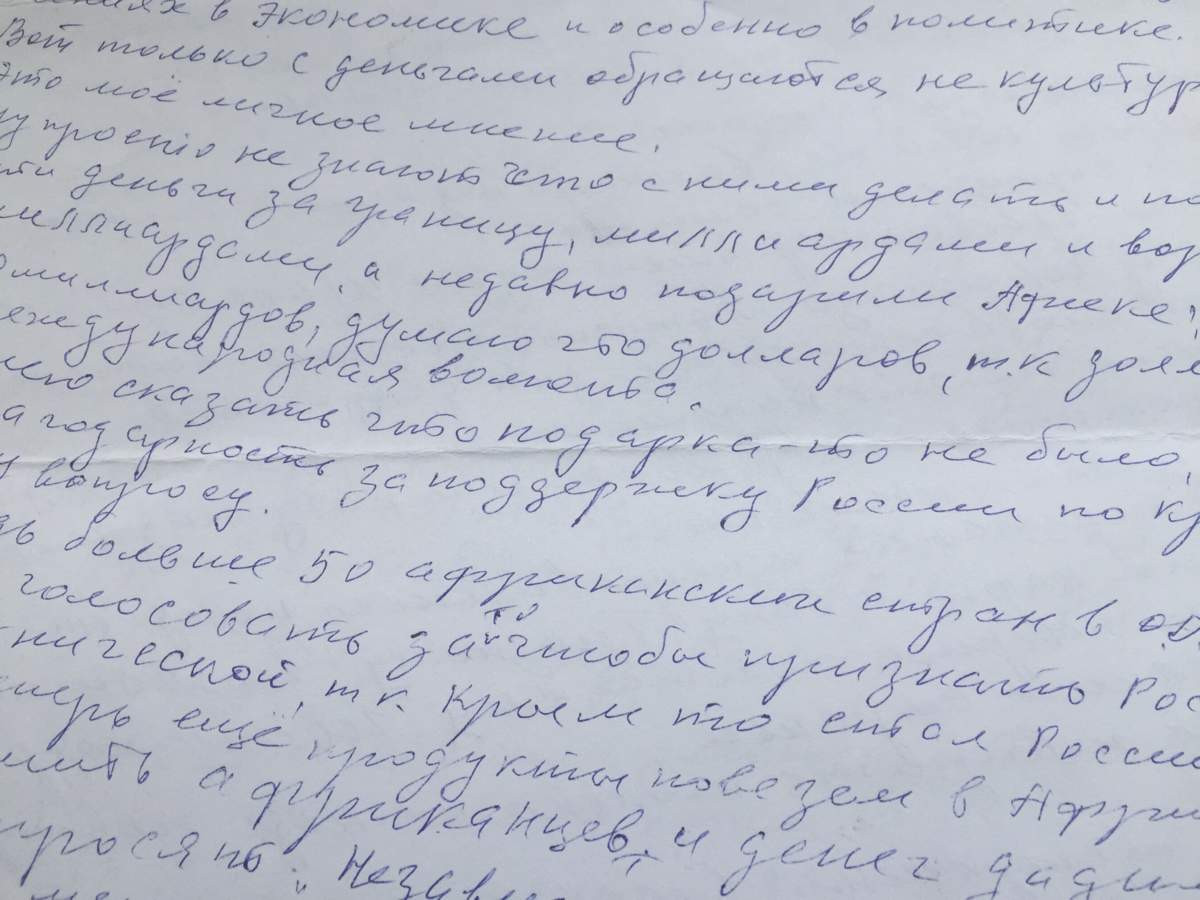 в экономике и особенно в политике.
Вот только с деньгами обращаются не культур
Это моё личное мнение.
просто не знают что с ними делать и по
деньги за границу, миллиардами и вор
миллиардами, а недавно подарили Африке
миллиардов, думаю что долларов, т.к
еждународная валюта.
сказать что подарка-то не было,
агодарность за поддержку России по Кр
вопросу.
больше 50 африканских стран в
голосовать за то чтобы признать Рос
т.к. Крым то стал Росси
ещё продукты повезем в Афри
африканцев, и денег дадим
просят. Незави